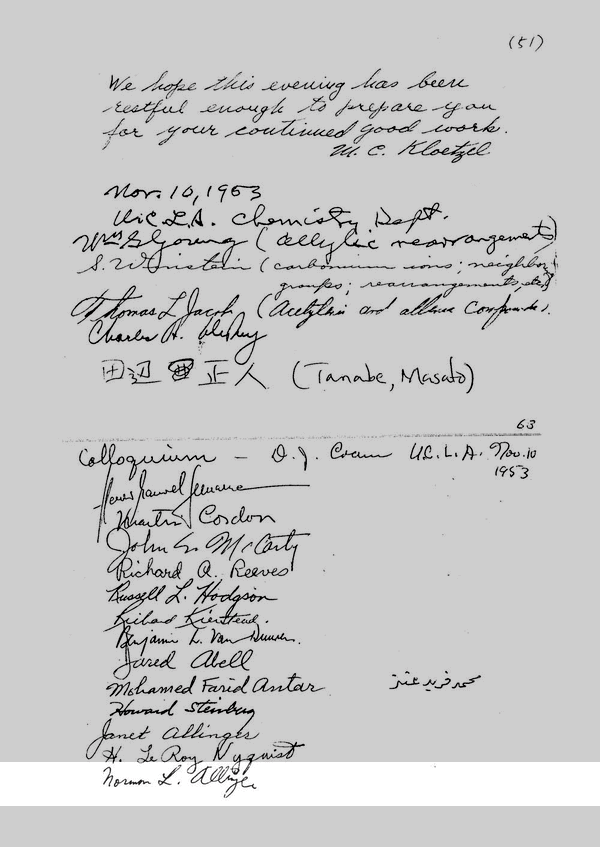 (51)
We hope this evening has been
restful enough to prepare you
for your continued good work.
M. C. Kloetzel
Nov. 10, 1953
U.C.L.A. Chemistry Dept.
Wm G Young (allylic rearrangements)
S. Winstein (carbonium ions; neighboring
groups; rearrangements, etc.)
Thomas L Jacobs (Acetylenic and allenic Compounds).
Charles A.
田辺 正人 (Tanabe, Masato)
63
Colloquium — D. J. Cram U.C.L.A. Nov. 10
1953
Martin Cordon
John G. McCarty
Richard A. Reeves
Russell L. Hodgson
Richard Kierstead.
Benjamin L. Van Duuren.
Jared Abell
Mohamed Farid Antar محمد فريد عنتر
Howard Steinberg
Janet Allinger
H. Le Roy Nyquist
Norman L. Allinger